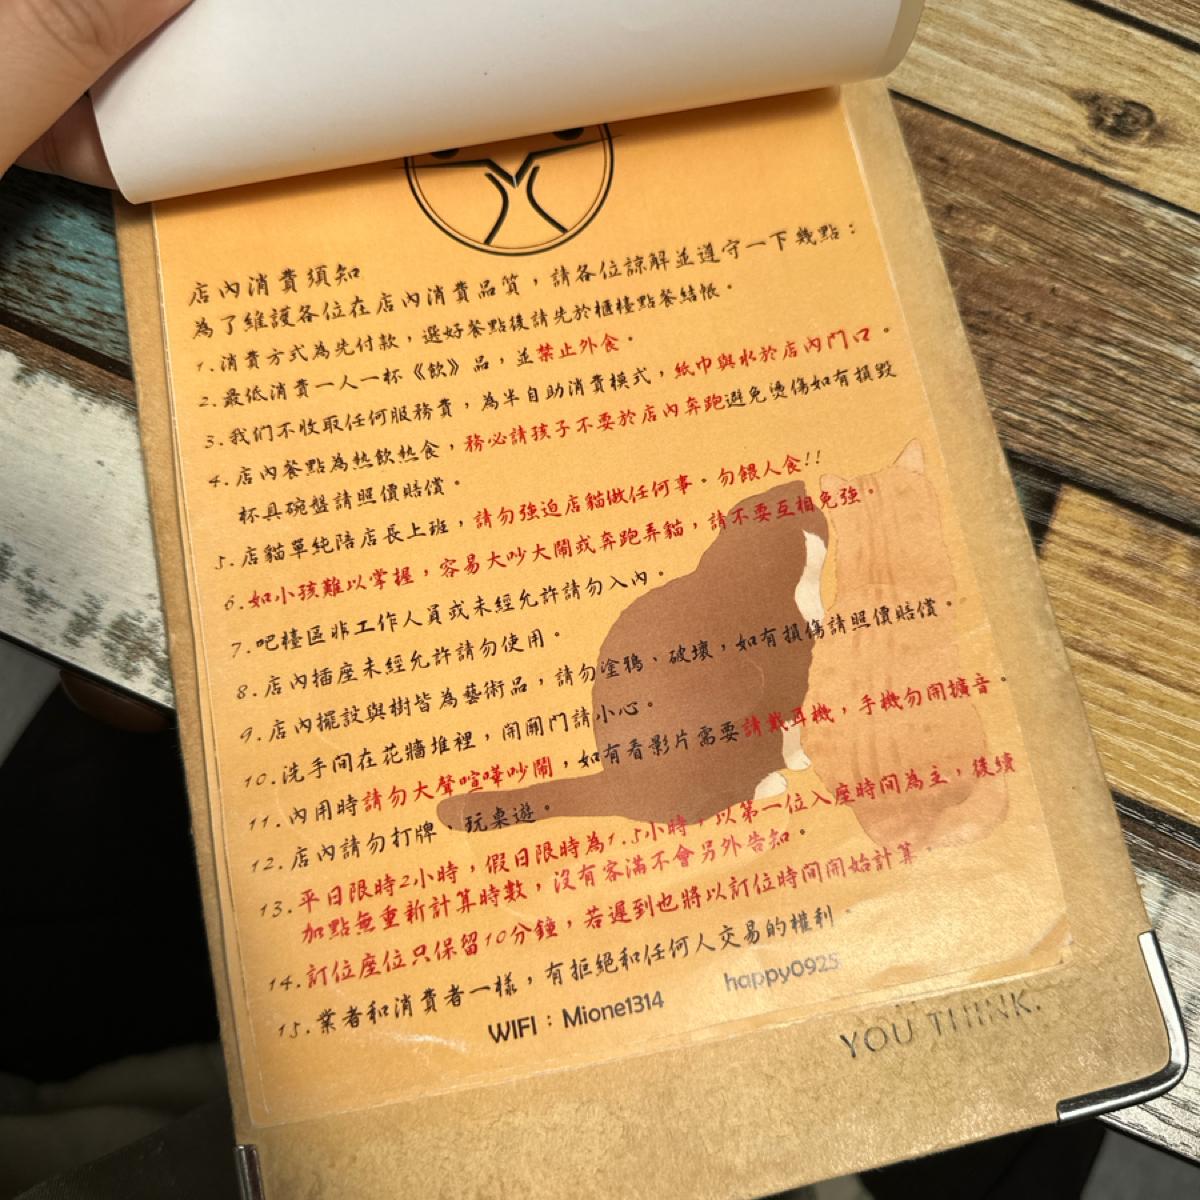 店內消費須知
為了維護各位在店內消費品質，請各位諒解並遵守一下幾點：
1.消費方式為先付款，選好餐點後請先於櫃檯點餐結帳。
2.最低消費一人一杯《飲》品，並禁止外食。
3.我們不收取任何服務費，為半自助消費模式，紙巾與水於店內門口。
4.店內餐點為熱飲熱食，務必請孩子不要於店內奔跑避免燙傷如有損毀
杯具碗盤請照價賠償。
5.店貓單純陪店長上班，請勿強迫店貓做任何事。勿餵人食!!
6.如小孩難以掌握，容易大吵大鬧或奔跑弄貓，請不要互相免強。
7.吧檯區非工作人員或未經允許請勿入內。
8.店內插座未經允許請勿使用。
9.店內擺設與樹皆為藝術品，請勿塗鴉、破壞，如有損傷請照價賠償。
10.洗手間在花牆堆裡，開關門請小心。
11.內用時請勿大聲喧嘩吵鬧，如有看影片需要請戴耳機，手機勿開擴音。
12.店內請勿打牌、玩桌遊。
13.平日限時2小時，假日限時為1.5小時，以第一位入座時間為主，後續
加點無重新計算時數，沒有客滿不會另外告知。
14.訂位座位只保留10分鐘，若遲到也將以訂位時間開始計算。
15.業者和消費者一樣，有拒絕和任何人交易的權利。
WIFI：Mione1314 happy0925
YOU THINK.